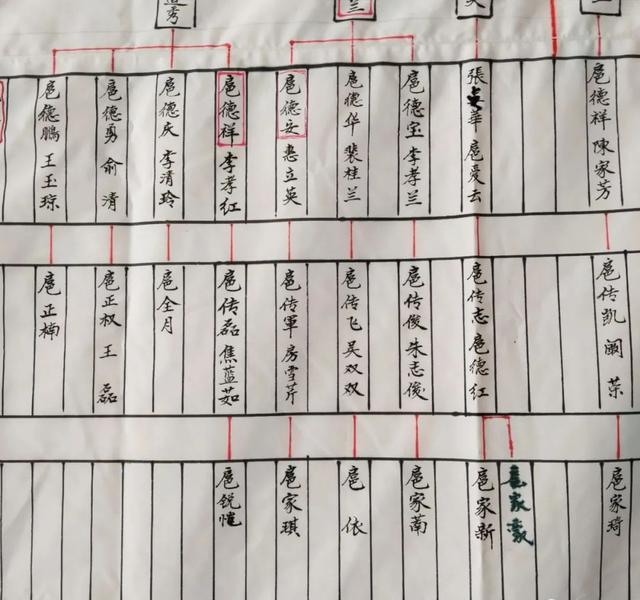 秀
兰
扈德鹏 王玉琮
扈德勇 俞清
扈德庆 李清玲
扈德祥 李孝红
扈德安 惠立英
扈德华 裴桂兰
扈德宝 李孝兰
張 華 扈爱云
扈德祥 陳家芳
扈正楠
扈正权 王磊
扈全月
扈传磊 焦蓝茹
扈传軍 房雪芹
扈传飞 吴双双
扈传俊 朱志俊
扈传志 扈德红
扈传凯 阚荣
扈锐恺
扈家琪
扈依
扈家萳
扈家新
扈家豪
扈家琦